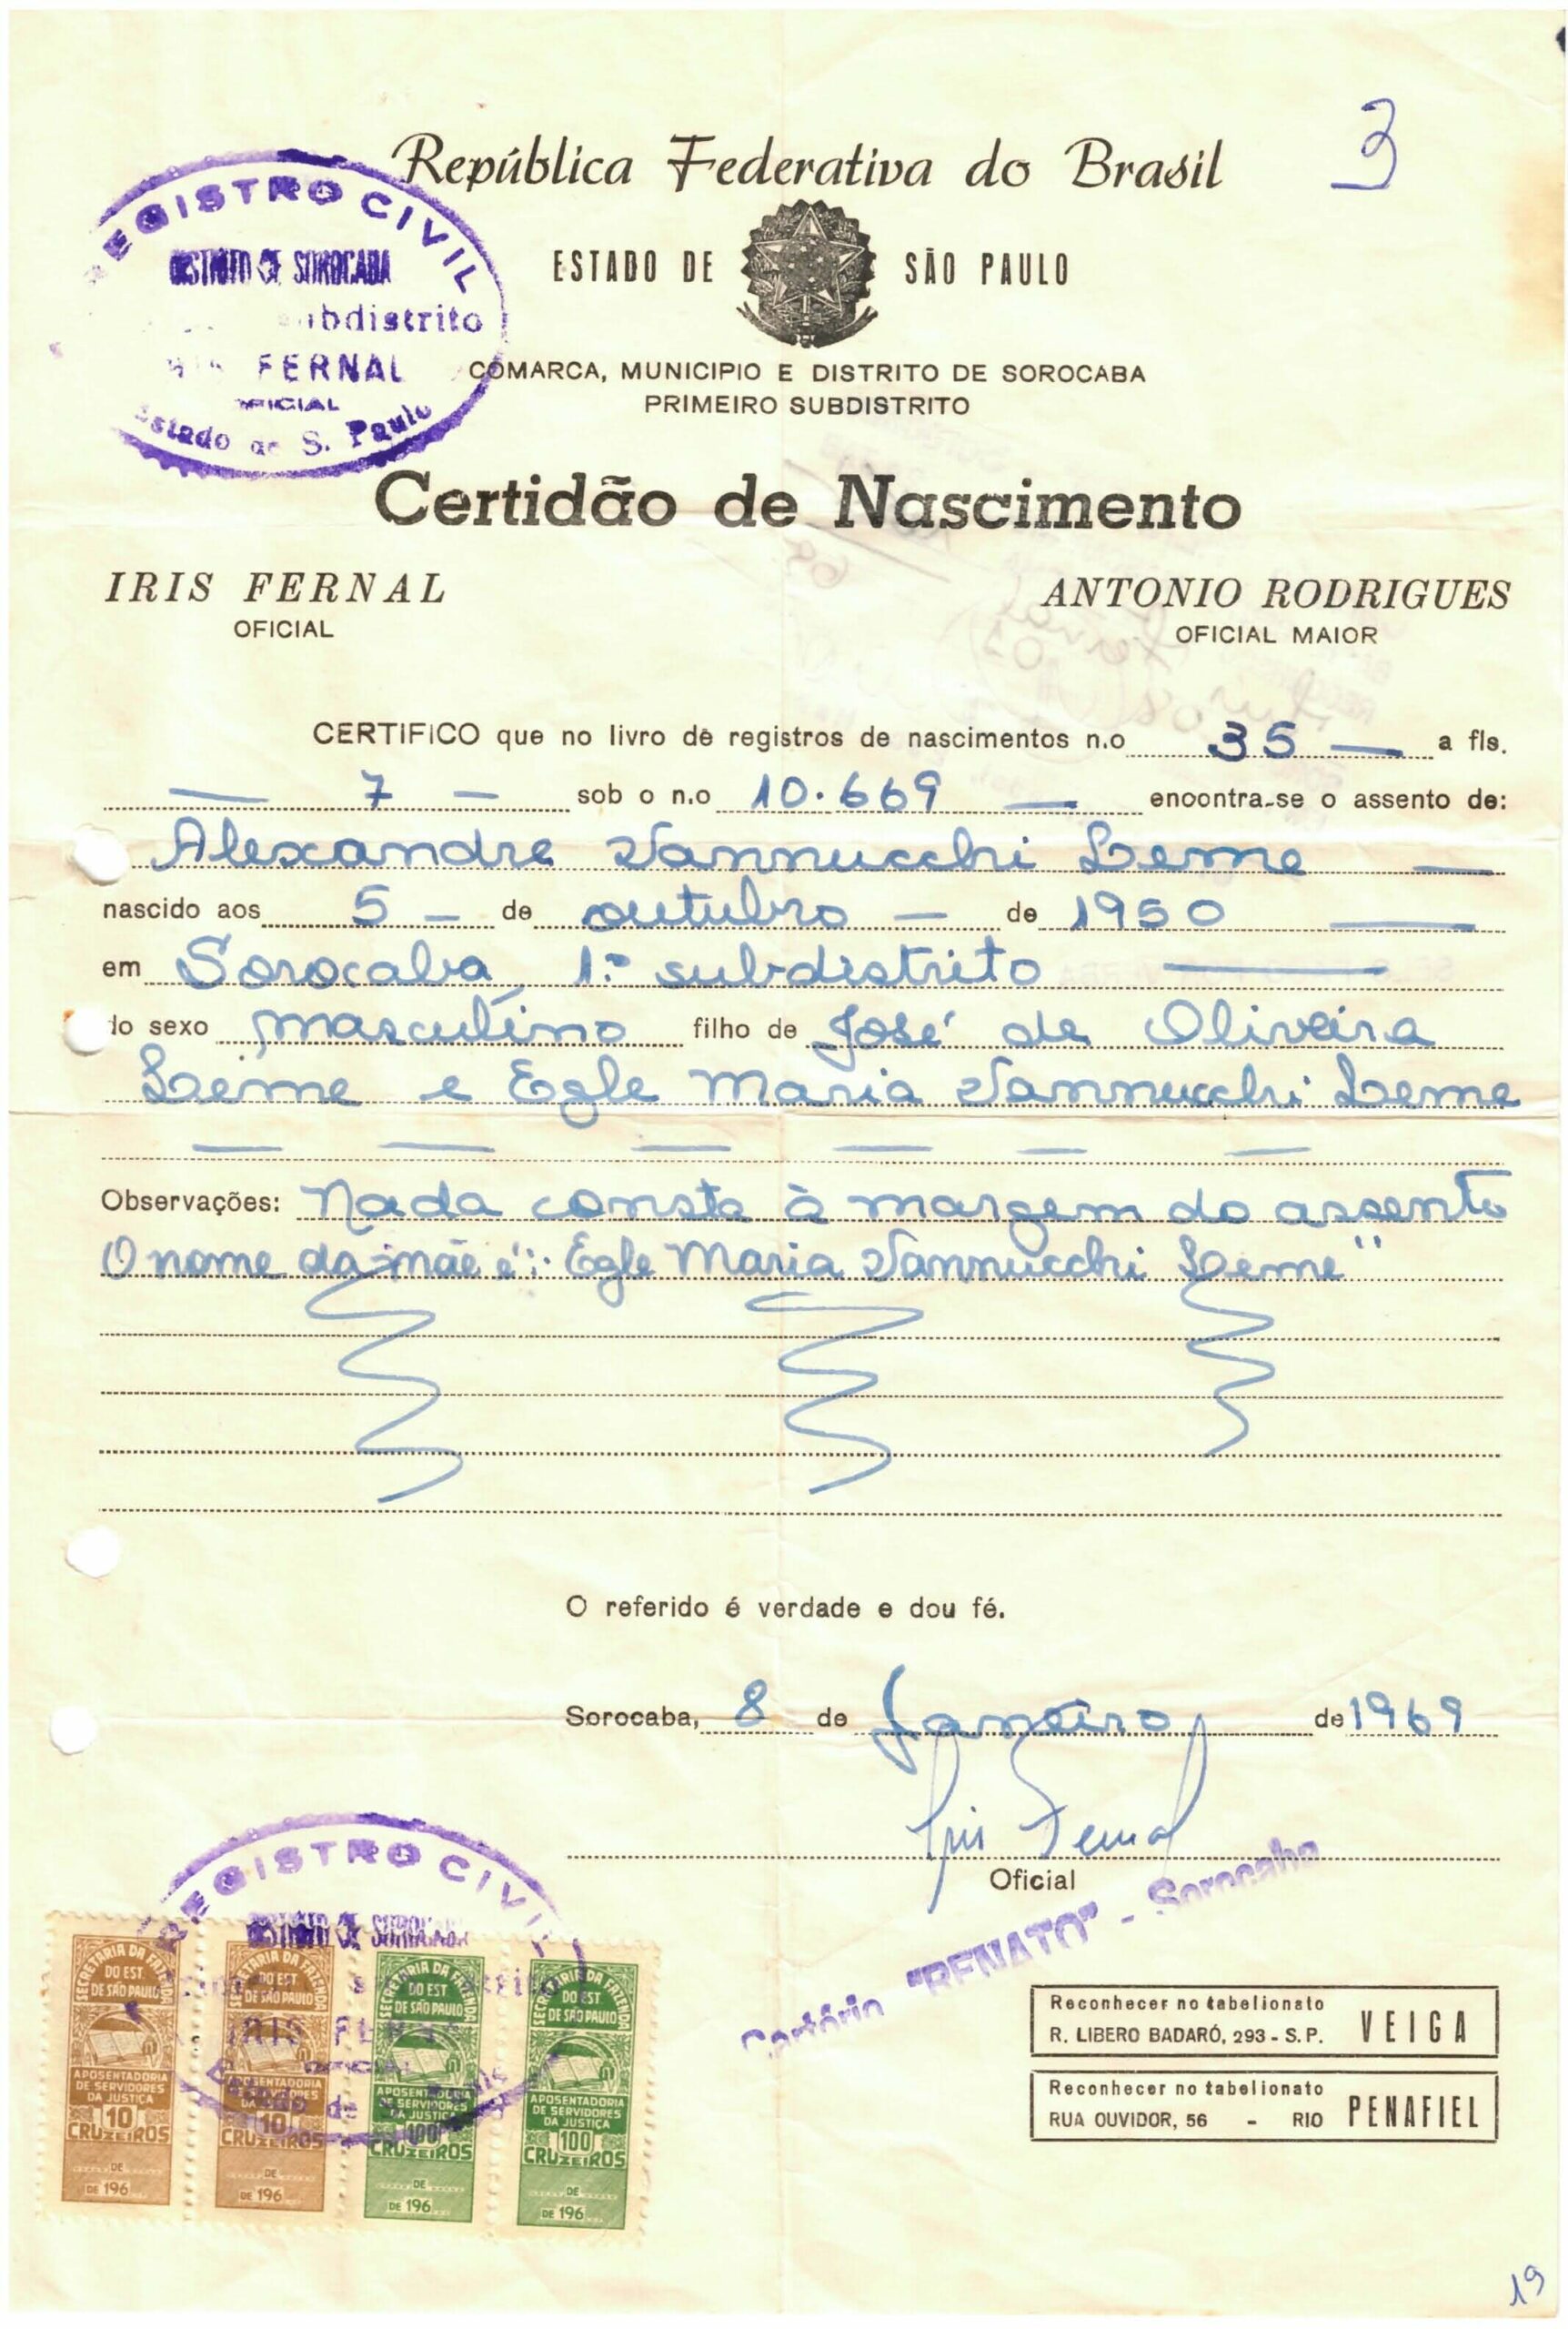 3
República Federativa do Brasil
REGISTRO CIVIL
DISTRITO DE SOROCABA
subdistrito
FERNAL
OFICIAL
Estado de S. Paulo
ESTADO DE SÃO PAULO
COMARCA, MUNICIPIO E DISTRITO DE SOROCABA
PRIMEIRO SUBDISTRITO
Certidão de Nascimento
IRIS FERNAL ANTONIO RODRIGUES
OFICIAL OFICIAL MAIOR
CERTIFICO que no livro de registros de nascimentos n.o 35 — a fls.
— 7 — sob o n.o 10.669 — encontra-se o assento de:
Alexandre Vannucchi Leme —
nascido aos 5 — de outubro — de 1950 —
em Sorocaba, 1.º subdistrito —
do sexo masculino filho de José de Oliveira
Leme e Egle Maria Vannucchi Leme
— — — — — —
Observações: Nada consta à margem do assento
O nome da mãe é": Egle Maria Vannucchi Leme"
O referido é verdade e dou fé.
Sorocaba, 8 de Janeiro de 1969
Iris Fernal
Oficial
Cartório "RENATO" - Sorocaba
REGISTRO CIVIL
DISTRITO DE SOROCABA
IRIS
OFICIAL
SECRETARIA DA FAZENDA DO EST. DE SÃO PAULO
APOSENTADORIA DE SERVIDORES DA JUSTIÇA
10 CRUZEIROS
DE
DE 196
SECRETARIA DA FAZENDA DO EST. DE SÃO PAULO
APOSENTADORIA DE SERVIDORES DA JUSTIÇA
10 CRUZEIROS
DE
DE 196
SECRETARIA DA FAZENDA DO EST. DE SÃO PAULO
APOSENTADORIA DE SERVIDORES DA JUSTIÇA
100 CRUZEIROS
DE
DE 196
SECRETARIA DA FAZENDA DO EST. DE SÃO PAULO
APOSENTADORIA DE SERVIDORES DA JUSTIÇA
100 CRUZEIROS
DE
DE 196
Reconhecer no tabelionato
R. LIBERO BADARÓ, 293 - S.P. VEIGA
Reconhecer no tabelionato
RUA OUVIDOR, 56 - RIO PENAFIEL
19